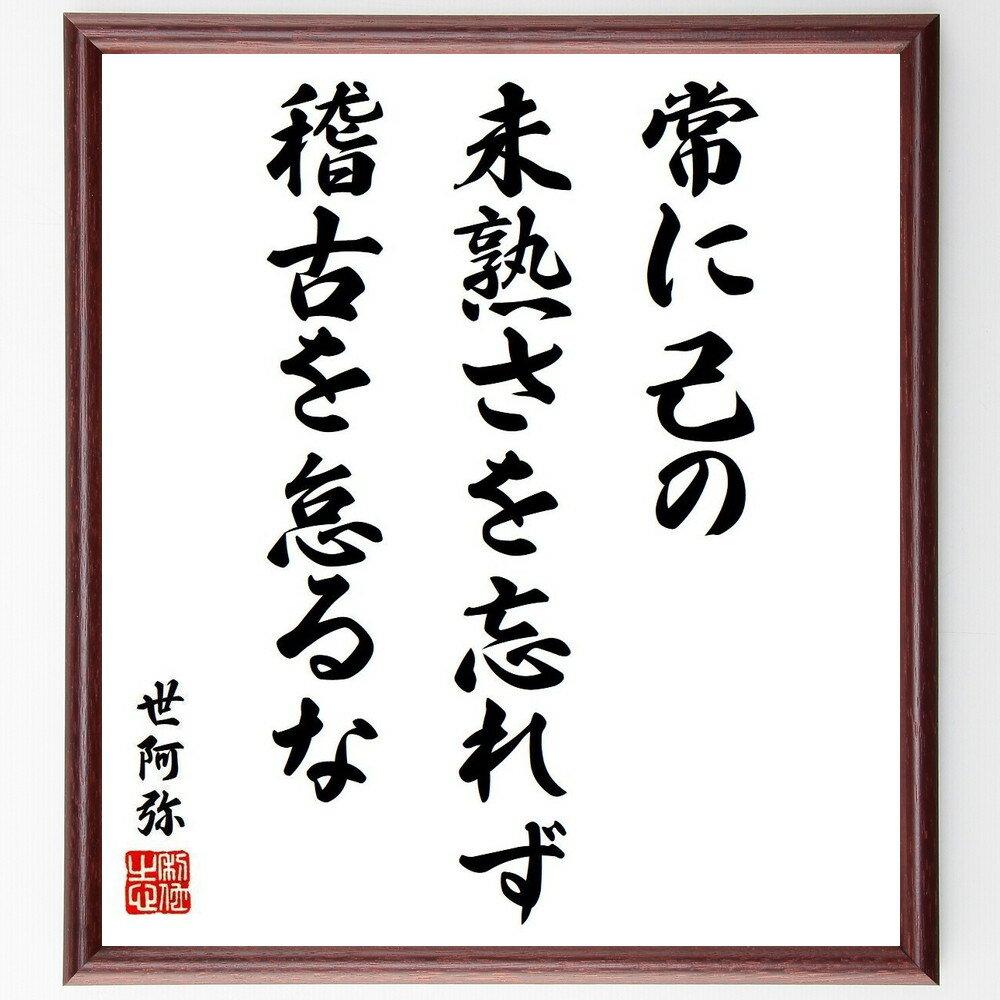 常に己の
未熟さを忘れず
稽古を怠るな
世阿弥